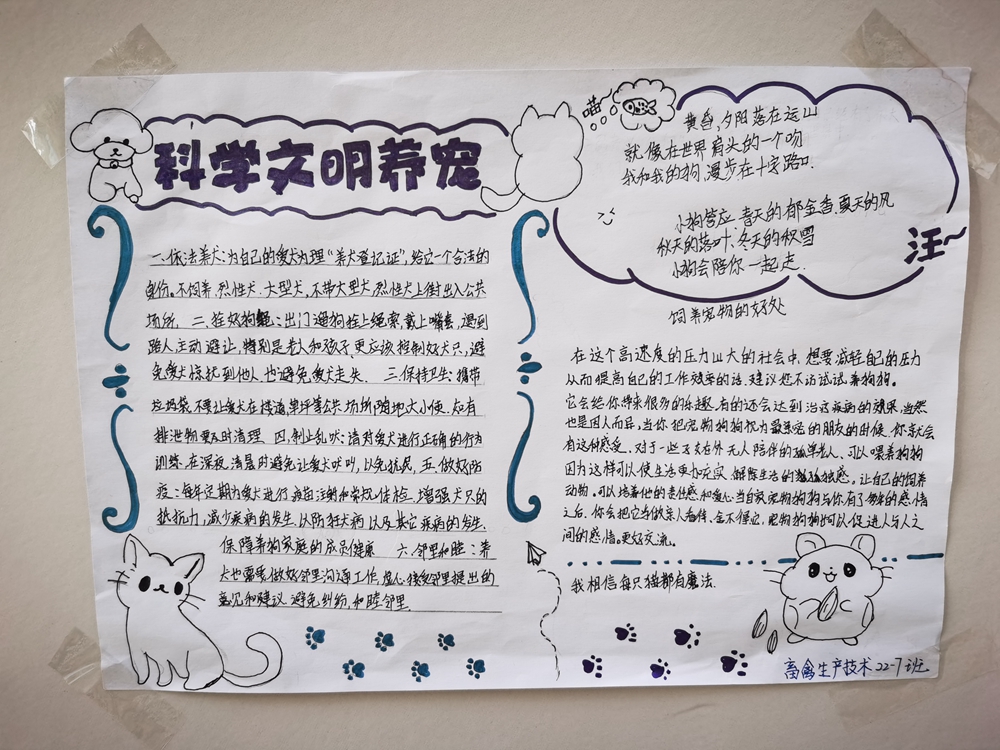 科学文明养宠
一、依法养犬:为自己的爱犬办理"养犬登记证",给它一个合法的
身份。不饲养烈性犬、大型犬,不带大型犬烈性犬上街出入公共
场所。 二、拴好狗绳:出门遛狗拴上绳索,戴上嘴套,遇到
路人主动避让,特别是老人和孩子,更应该控制好犬只,避
免爱犬惊扰到他人,也避免爱犬走失。 三、保持卫生:携带
垃圾袋,不要让爱犬在楼道,草坪等公共场所随地大小便,如有
排泄物要及时清理 四,制止乱吠:请对爱犬进行正确的行为
训练,在深夜,清晨时避免让爱犬吠叫,以免扰民, 五、做好防
疫:每年定期为爱犬进行疫苗注射和常规体检,增强犬只的
抵抗力,减少疾病的发生,以防狂犬病以及其它疾病的发生.
保障养狗家庭的成员健康 六、邻里和睦:养
犬也需要做好邻里沟通工作,虚心接受邻里提出的
意见和建议,避免纠纷,和睦邻里
喵
黄昏,夕阳落在远山
就像在世界肩头的一个吻
我和我的狗,漫步在十字路口.
小狗答应,春天的郁金香,夏天的风
秋天的落叶、冬天的积雪
小狗会陪你一起走.
汪~
饲养宠物的好处
在这个高速度的压力山大的社会中,想要减轻自己的压力
从而提高自己的工作效率的话,建议您不访试试,养狗狗。
它会给你带来很多的乐趣,有的还会达到治疗疾病的效果,当然
也是因人而异,当你把宠物狗狗视为最亲密的朋友的时候,你就会
有这种感受、对于一些子女在外无人陪伴的孤单老人、可以喂养狗狗
因为这样可以使生活更加充实,解除生活的孤独感。让自己的饲养
动物。可以培养他的责任感和爱心当自家宠物狗狗与你有了的感情
之后,你会把它当做亲人看待、舍不得它,宠物狗狗可以促进人与人之
间的感情。更好交流。
我相信每只猫都有魔法.
畜禽生产技术22-7班